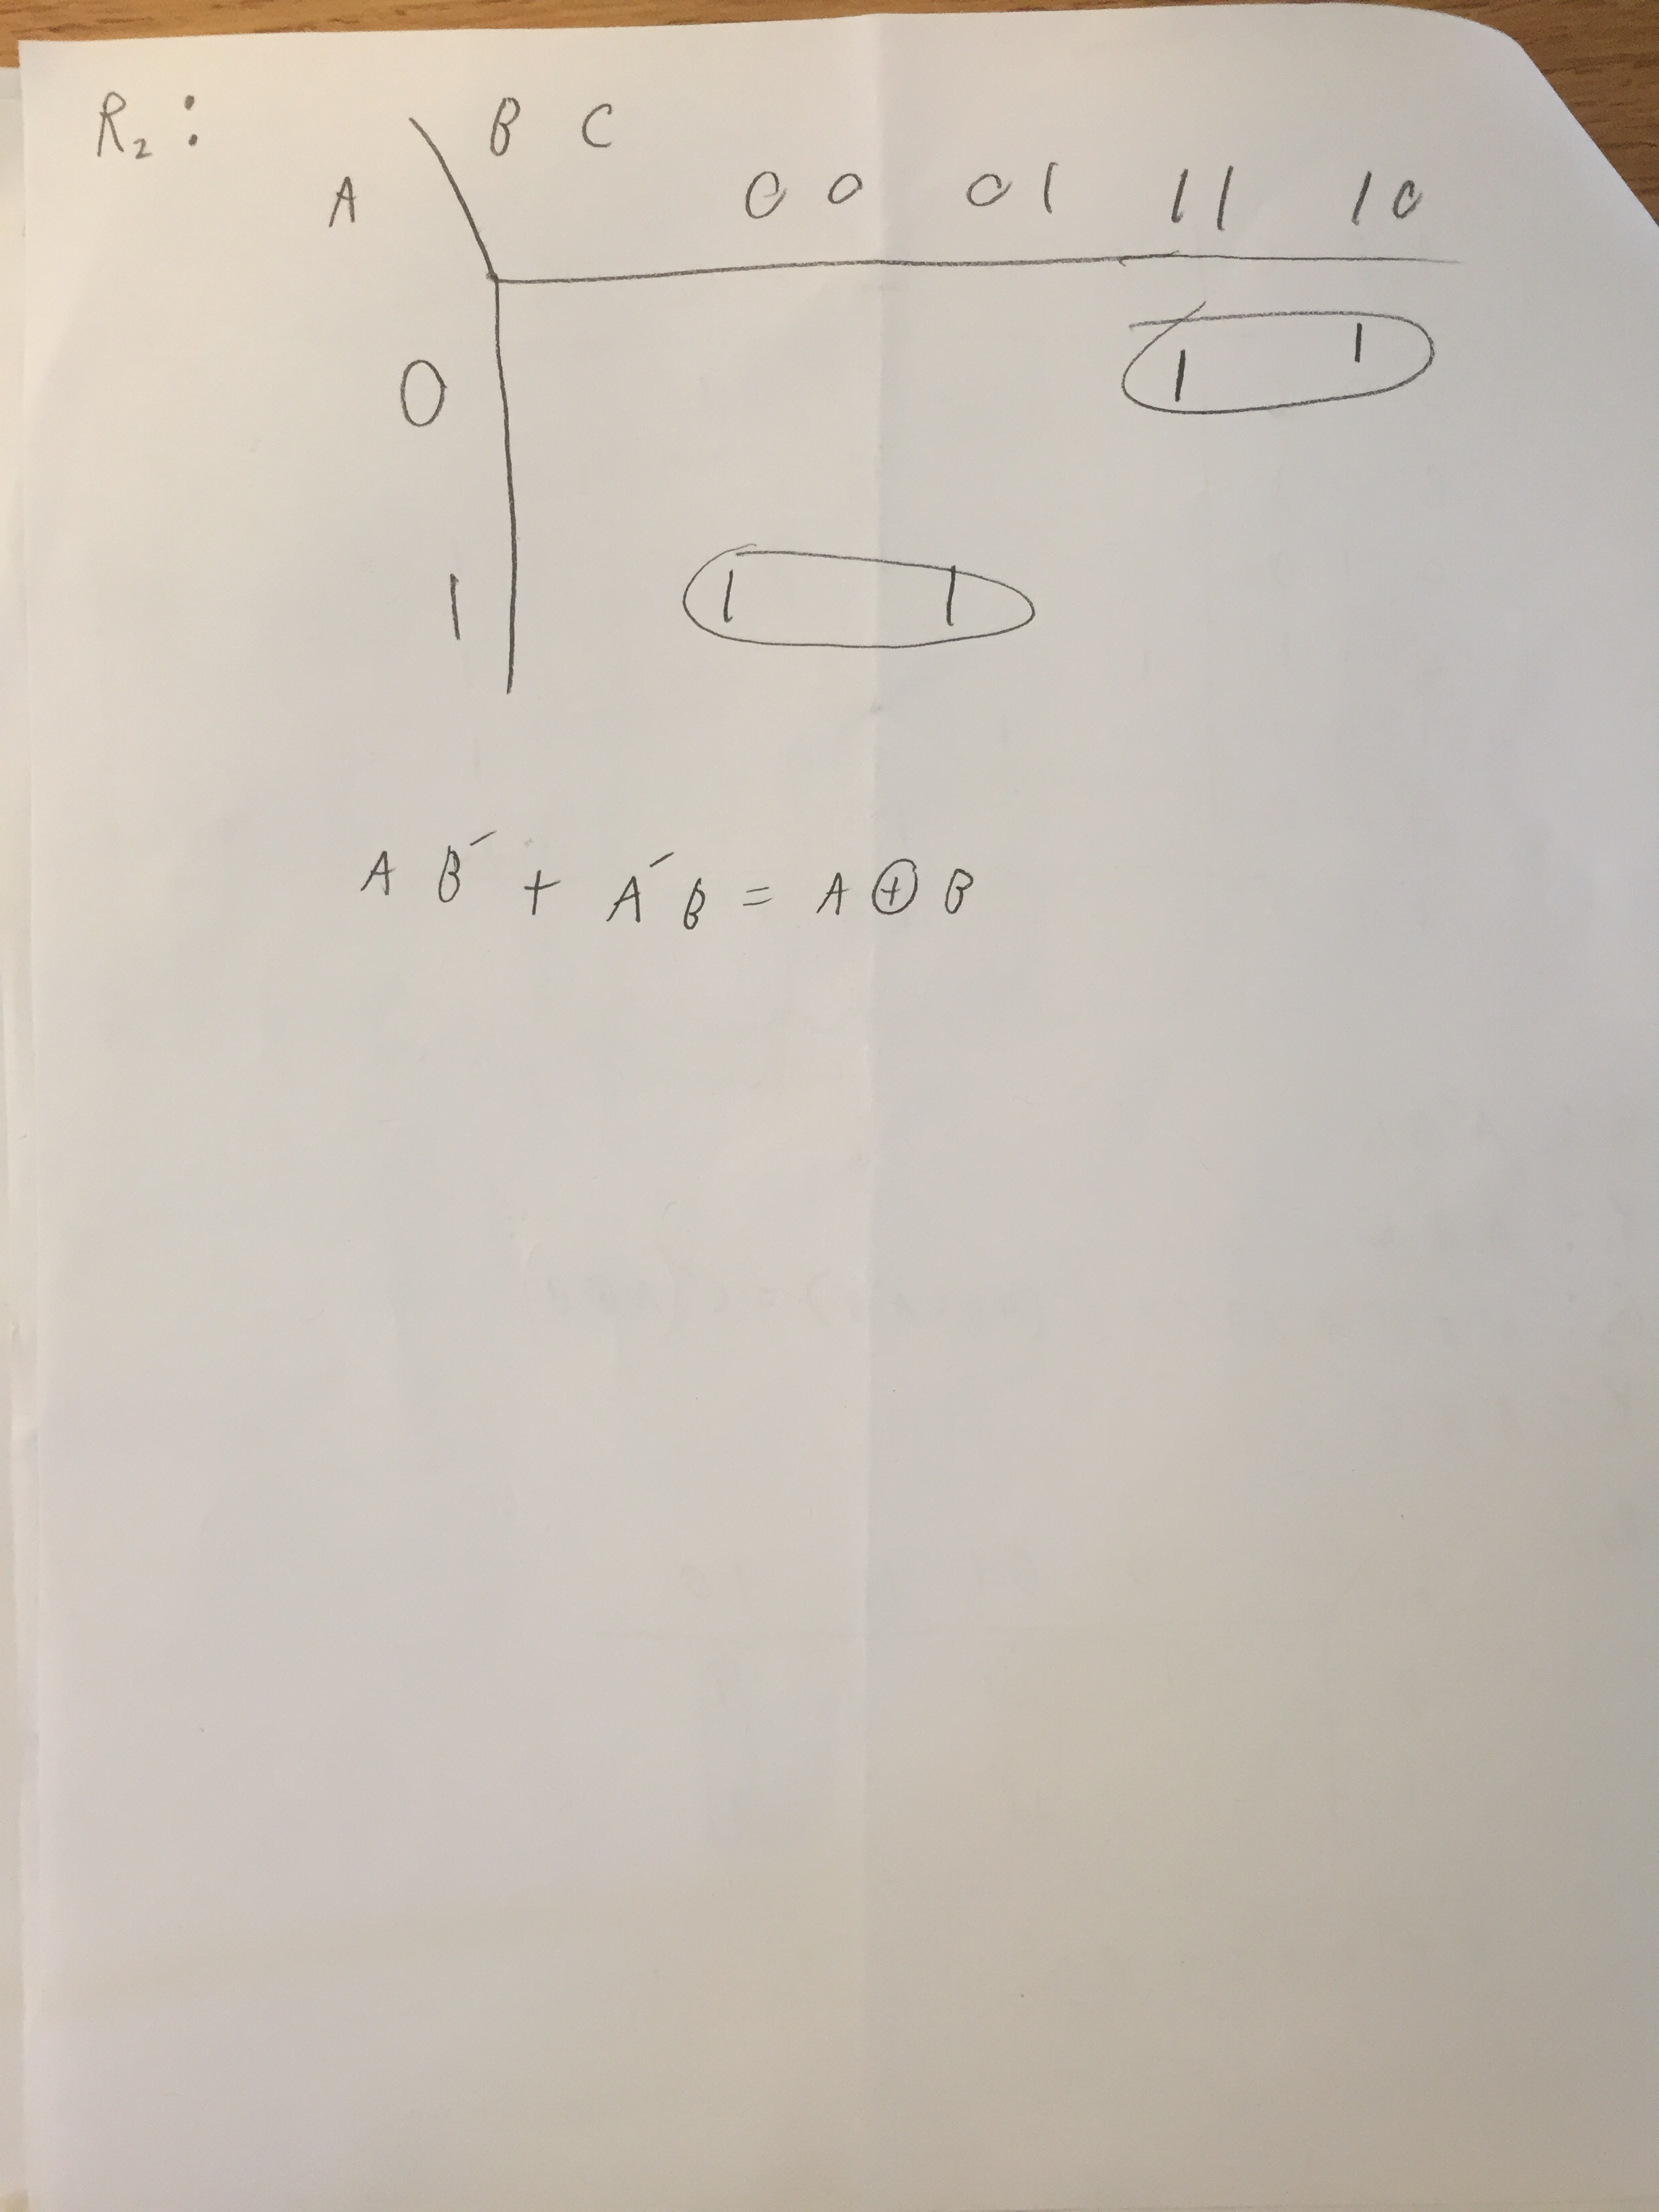 R₂: B C
A 00 01 11 10
0 1 1
1 1 1
A B′ + A′ B = A ⊕ B